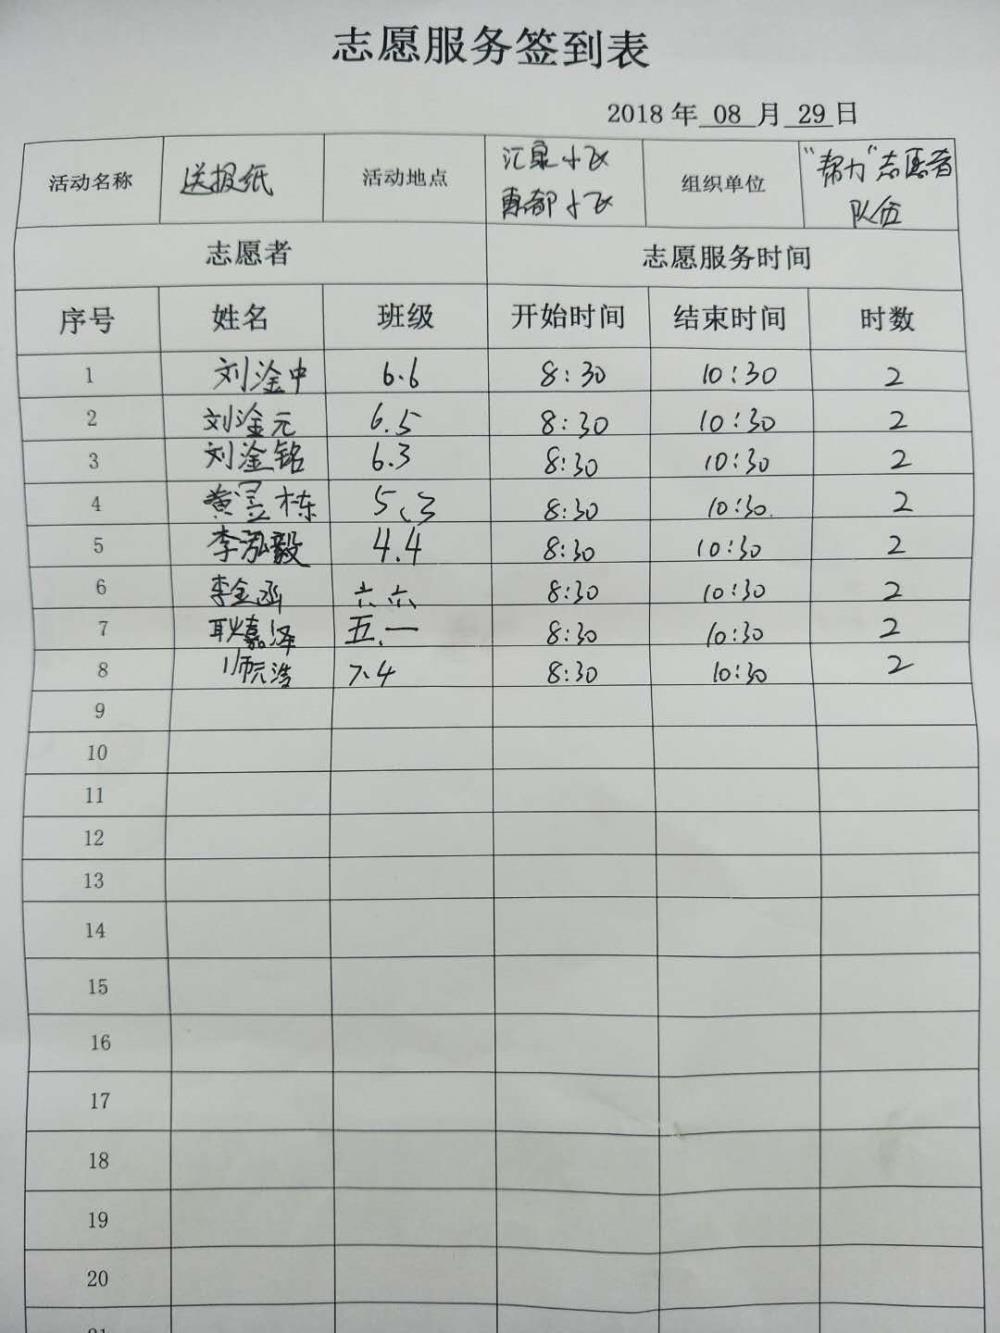 志愿服务签到表
2018 年 08 月 29 日
活动名称 送报纸 活动地点 汇泉小区 惠都小区 组织单位 “帮力”志愿者队伍
志愿者 志愿服务时间
序号 姓名 班级 开始时间 结束时间 时数
1 刘淦中 6.6 8:30 10:30 2
2 刘淦元 6.5 8:30 10:30 2
3 刘淦铭 6.3 8:30 10:30 2
4 黄昱栋 5、3 8:30 10:30 2
5 李泓毅 4.4 8:30 10:30 2
6 李金函 六.六 8:30 10:30 2
7 耿嘉泽 五.一 8:30 10:30 2
8 师元浩 7、4 8:30 10:30 2
9
10
11
12
13
14
15
16
17
18
19
20